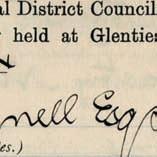 al District Council
held at Glenties
nell Esq
es.)